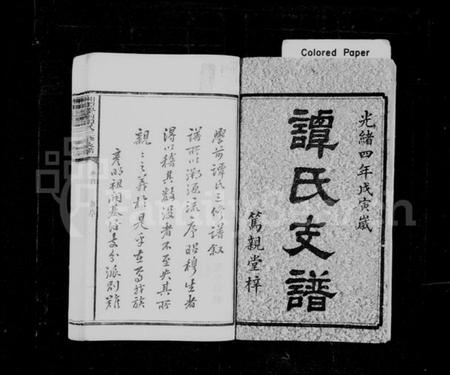 Colored Paper
光緒四年戊寅歲
譚氏支譜
篤親堂梓
學前譚氏三修譜敘
譜所以溯源流序昭穆生者
得以稽其數沒者不至失其所
親親之義於是乎在焉我族
彥昭祖開基
分派別雖